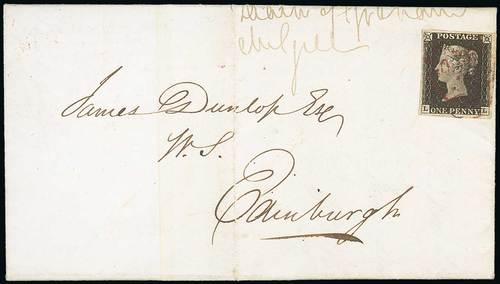 POSTAGE
ONE PENNY
L L
James Dunlop Esq
W.S.
Edinburgh